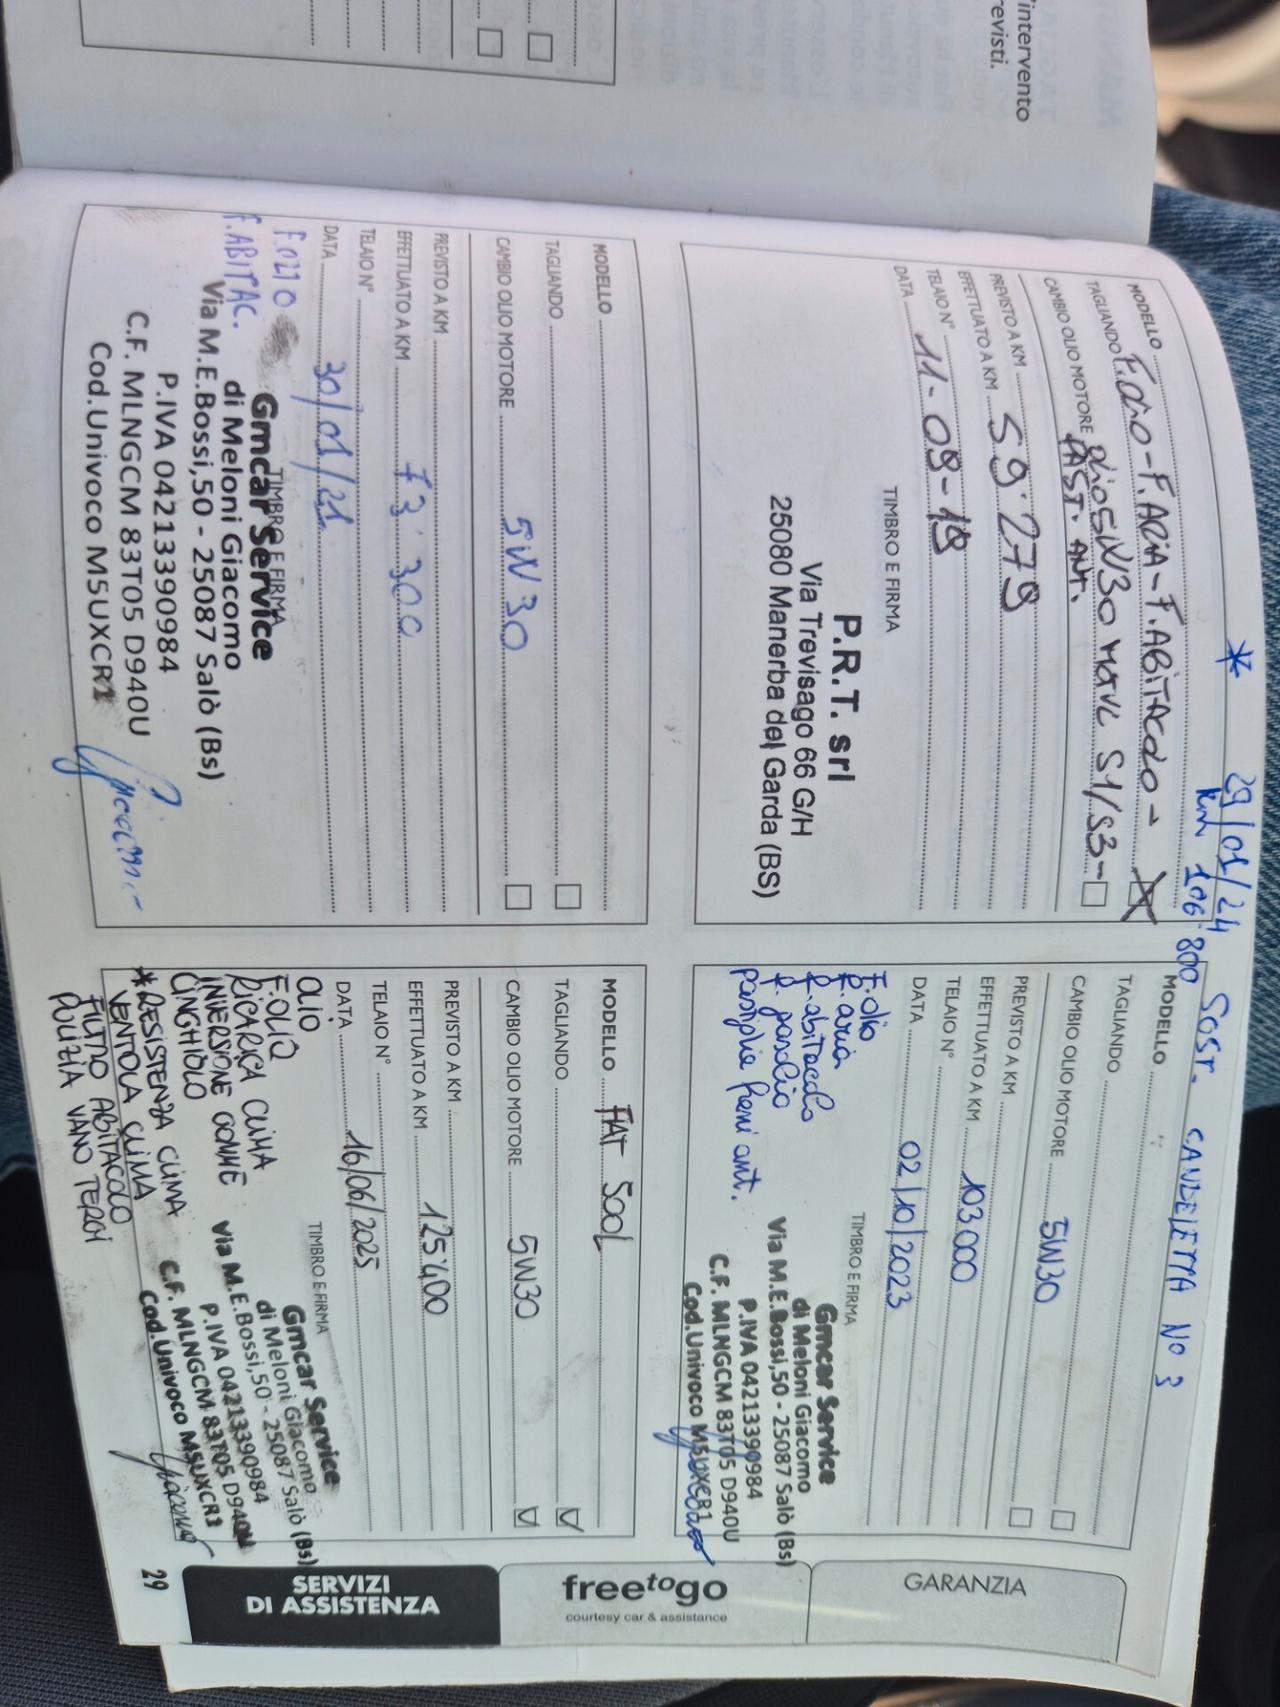 'intervento
revisti.
* 29/01/24 SOST. CANDELETTA N° 3
km 106.800
MODELLO F.olio - F.ARIA - F.ABITACOLO -
TAGLIANDO olio 5W30 MOTUL S1/S3 -
CAMBIO OLIO MOTORE PAST. ANT.
PREVISTO A KM
EFFETTUATO A KM 59.279
TELAIO N°
DATA 11-09-19
TIMBRO E FIRMA
P.R.T. srl
Via Trevisago 66 G/H
25080 Manerba del Garda (BS)
MODELLO
TAGLIANDO
CAMBIO OLIO MOTORE 5W30
PREVISTO A KM
EFFETTUATO A KM 103000
TELAIO N°
DATA 02/10/2023
TIMBRO E FIRMA
F. olio
F. aria
F. abitacolo
F. gasolio
pastiglie freni ant.
Gmcar Service
di Meloni Giacomo
Via M.E.Bossi,50 - 25087 Salò (Bs)
P.IVA 04213390984
C.F. MLNGCM 83T05 D940U
Cod.Univoco M5UXCR1
MODELLO
TAGLIANDO
CAMBIO OLIO MOTORE 5W30
PREVISTO A KM
EFFETTUATO A KM 73.300
TELAIO N°
DATA 30/01/21
TIMBRO E FIRMA
F.OLIO
F.ABITAC.
Gmcar Service
di Meloni Giacomo
Via M.E.Bossi,50 - 25087 Salò (Bs)
P.IVA 04213390984
C.F. MLNGCM 83T05 D940U
Cod.Univoco M5UXCR1
MODELLO FIAT 500L
TAGLIANDO
CAMBIO OLIO MOTORE 5W30
PREVISTO A KM
EFFETTUATO A KM 125400
TELAIO N°
DATA 16/06/2025
TIMBRO E FIRMA
OLIO
F.OLIO
RICARICA CLIMA
INVERSIONE GOMME
CINGHIOLO
* RESISTENZA CLIMA
VENTOLA CLIMA
FILTRO ABITACOLO
PULIZIA VANO TERGI
Gmcar Service
di Meloni Giacomo
Via M.E.Bossi,50 - 25087 Salò (Bs)
P.IVA 04213390984
C.F. MLNGCM 83T05 D940U
Cod.Univoco M5UXCR1
GARANZIA
freetogo
courtesy car & assistance
SERVIZI
DI ASSISTENZA
29